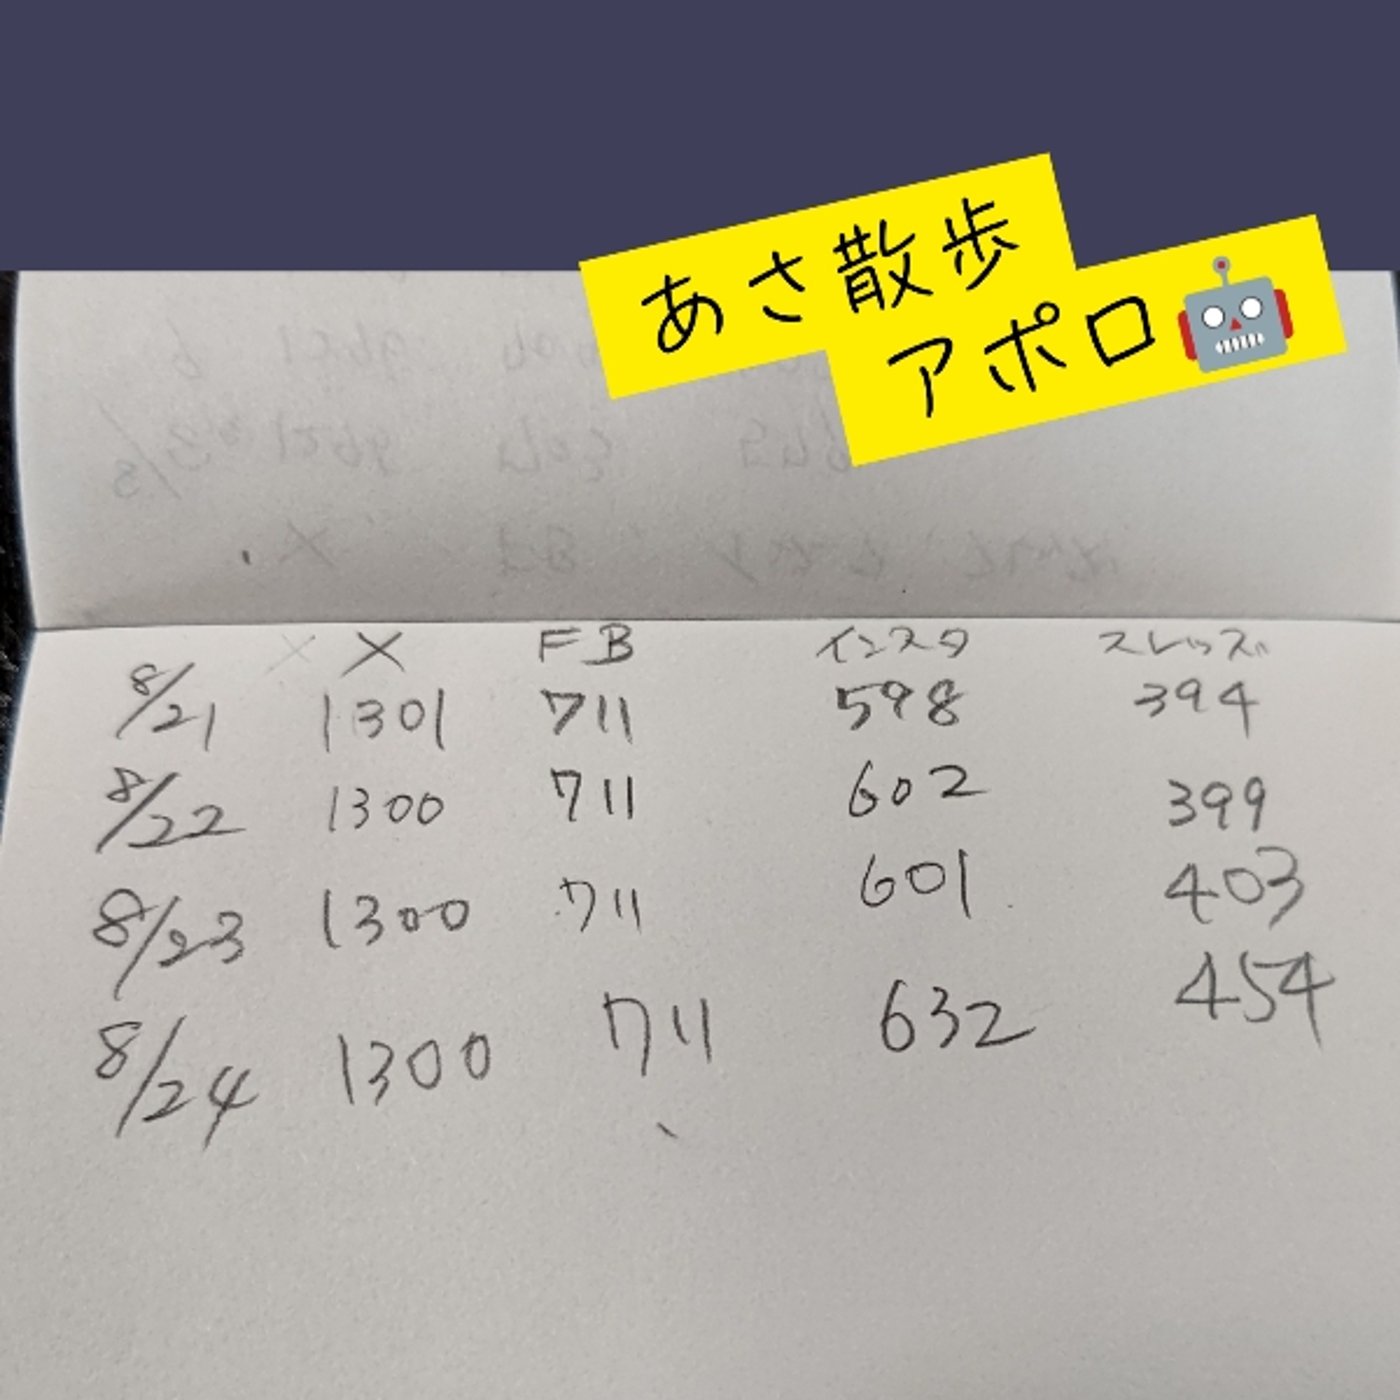 あさ散歩
アポロ
X FB インスタ スレッズ
8/21 1301 711 598 394
8/22 1300 711 602 399
8/23 1300 711 601 403
8/24 1300 711 632 454